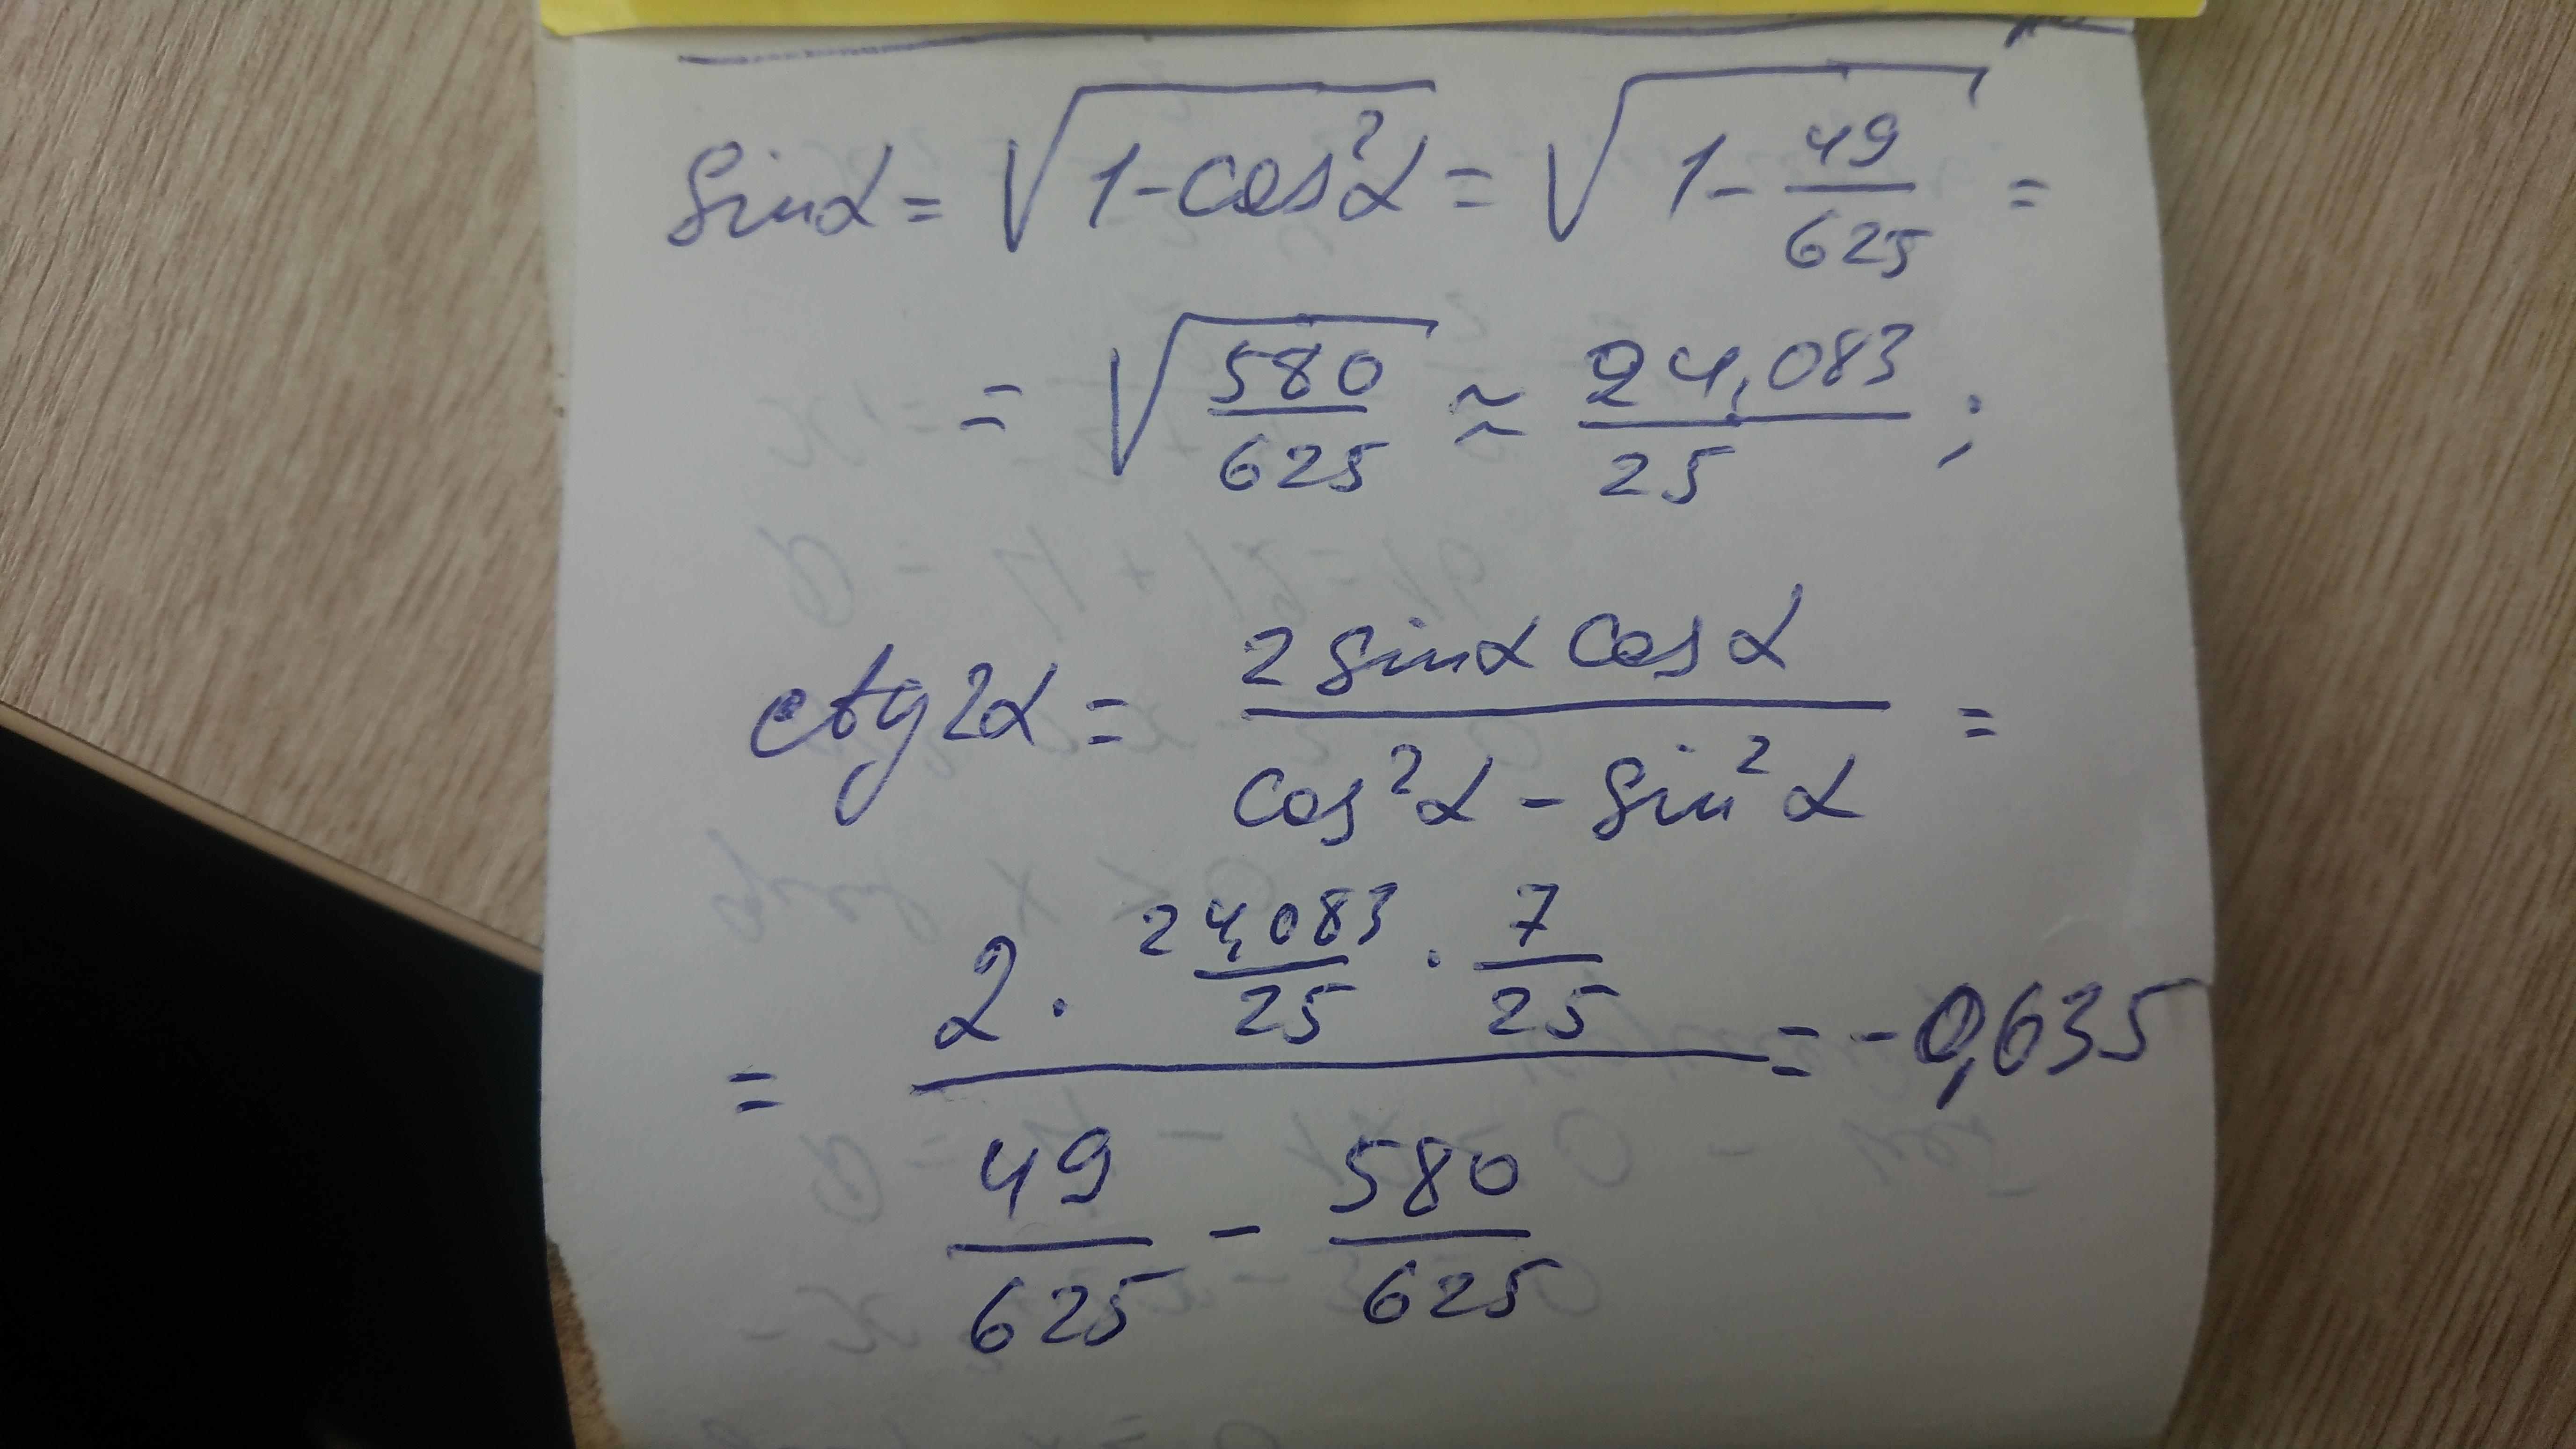 sinα = √(1-cos²α) = √(1 - 49/625) =
= √(580/625) ≈ 24,083/25 ;
ctg2α = (2 sinα cosα)/(cos²α - sin²α) =
= (2 · 24,083/25 · 7/25)/(49/625 - 580/625) = -0,635